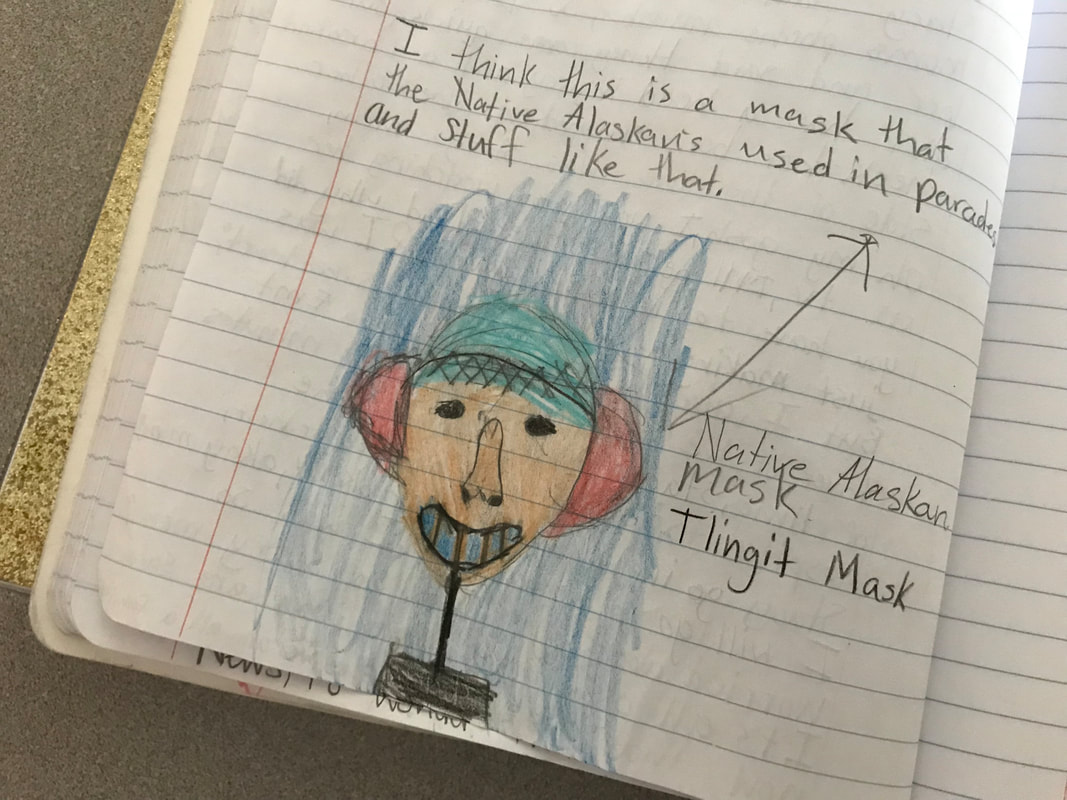 I think this is a mask that
the Native Alaskan's used in parades
and stuff like that.
Native Alaskan
Mask
Tlingit Mask
News,